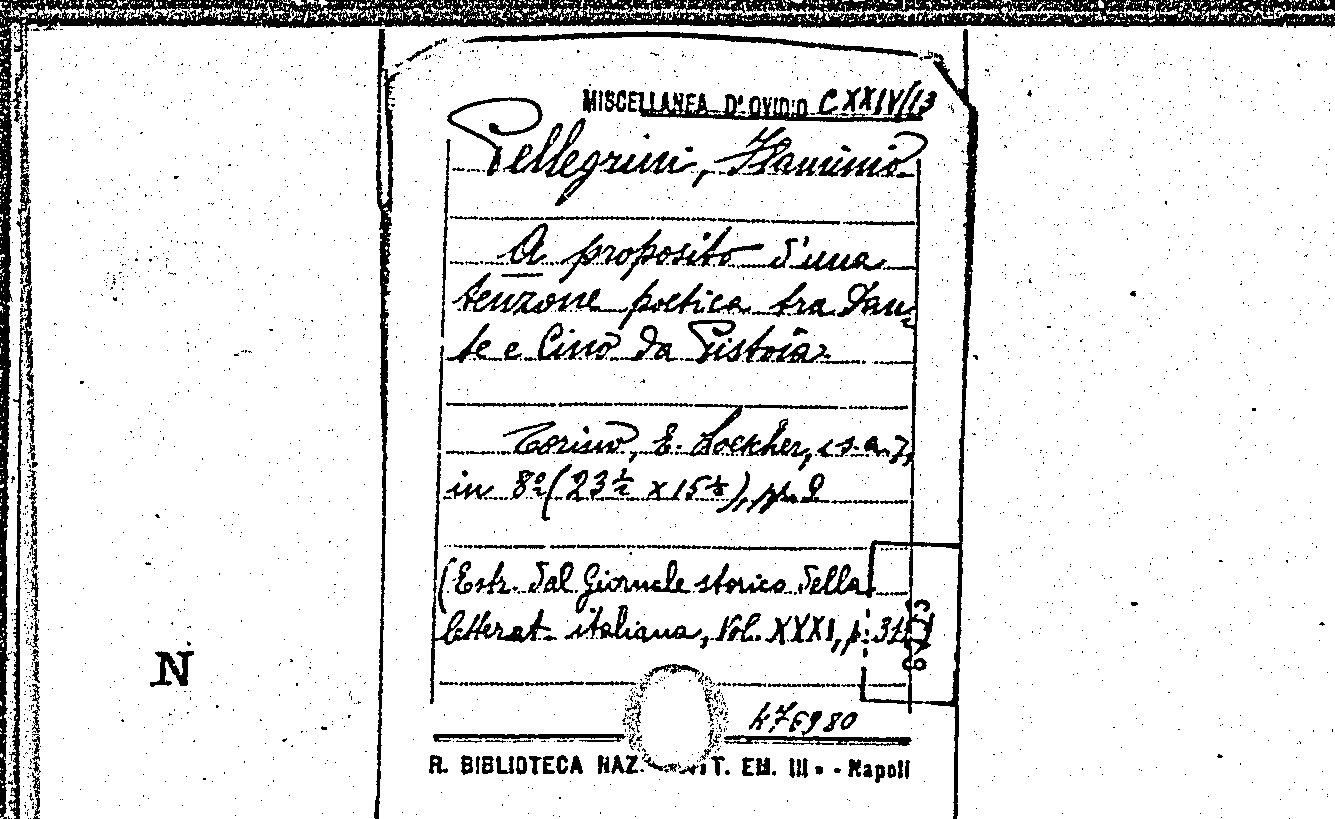 MISCELLANEA D'OVIDIO CXXIV/13
Pellegrini, Flaminio.
A proposito d'una
tenzone poetica tra Dan-
te e Cino da Pistoia.
Torino, E. Loescher, [s.a.],
in 8º (23½ x 15½), pp. 9
(Estr. dal Giornale storico della
letterat. italiana, Vol. XXXI, p.
476980
N
R. BIBLIOTECA NAZ. VITT. EM. III - Napoli